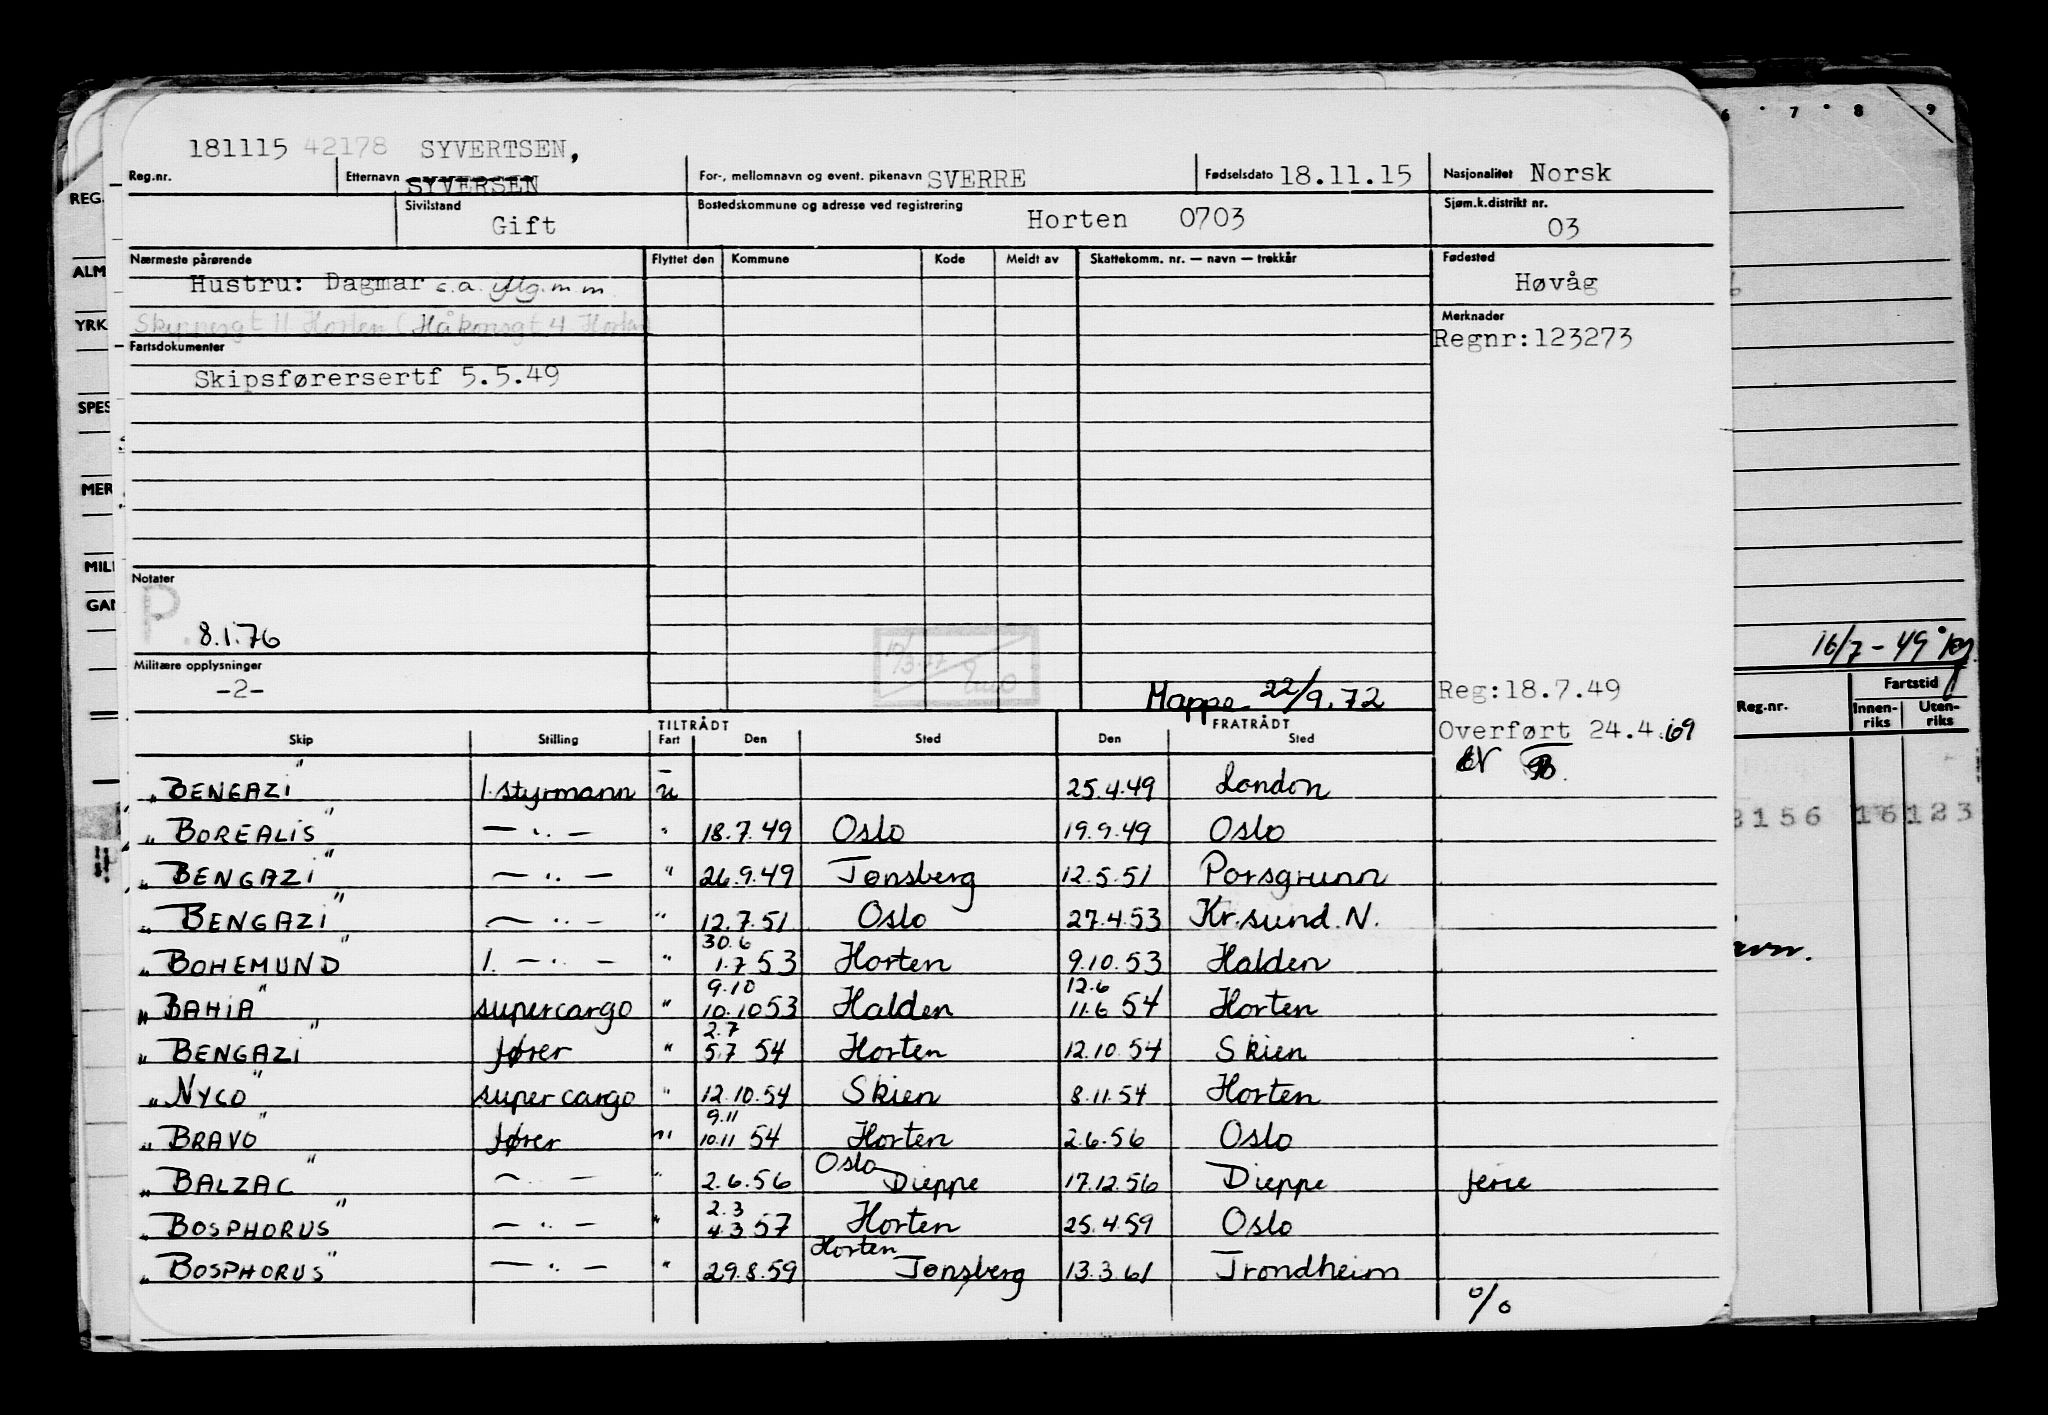 181115 42178 SYVERTSEN,
Reg.nr. Etternavn SYVERSEN For-, mellomnavn og event. pikenavn SVERRE Fødselsdato 18.11.15 Nasjonalitet Norsk
Sivilstand Gift Bostedskommune og adresse ved registrering Horten 0703 Sjøm.k.distrikt nr. 03
Nærmeste pårørende Flyttet den Kommune Kode Meldt av Skattekomm. nr. — navn — trekkår Fødested
Hustru: Dagmar Høvåg
Skippergt 11 Horten (Håkonsgt 4 Horten
Merknader
Regnr:123273
Fartsdokumenter
Skipsførersertf 5.5.49
Notater
P.
8.1.76
Militære opplysninger
-2-
Mappe 22/9.72
Reg:18.7.49
Overført 24.4.69
TILTRÅDT FRATRÅDT
Skip Stilling Fart Den Sted Den Sted
"BENGAZI" 1.styrmann u 25.4.49 London
"BOREALIS" — " — " 18.7.49 Oslo 19.9.49 Oslo
"BENGAZI" — " — " 26.9.49 Tønsberg 12.5.51 Porsgrunn
"BENGAZI" — " — " 12.7.51 Oslo 27.4.53 Kr.sund.N.
30.6
"BOHEMUND" 1. — " — " 1.7 53 Horten 9.10.53 Halden
9.10 12.6
"BAHIA" supercargo " 10.10 53 Halden 11.6 54 Horten
2.7
"BENGAZI" fører " 5.7 54 Horten 12.10.54 Skien
"NYCO" supercargo " 12.10.54 Skien 8.11.54 Horten
9.11
"BRAVO" fører " 10.11 54 Horten 2.6.56 Oslo
Oslo
"BALZAC" — " — " 2.6.56 Dieppe 17.12.56 Dieppe ferie
2.3
"BOSPHORUS" — " — " 4.3 57 Horten 25.4.59 Oslo
Horten
"BOSPHORUS" — " — " 29.8.59 Tønsberg 13.3.61 Trondheim
o/o
REG.
ALM
YRK
SPES
MER
MILI
GAN
6 7 8 9
16/7-49
Reg.nr. Fartstid
Innen-riks Uten-riks
156 16123
avn.